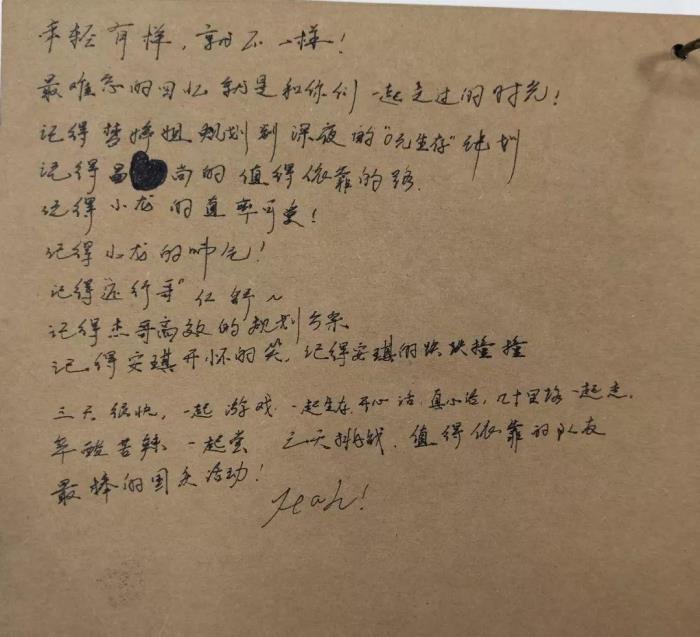 年轻有样，就不一样！
最难忘的回忆就是和你们一起走过的时光！
记得梦婷姐规划到深夜的“0元生存”计划
记得昌尚的值得依靠的路.
记得小龙的直率可爱！
记得小龙的帅气！
记得远行哥
记得杰哥高效的规划方案
记得安琪开怀的笑，记得安琪的跌跌撞撞
三天很快，一起游戏，一起生存，开心话，真心话，几十里路一起走.
辛酸苦辣一起尝 三天挑战，值得依靠的队友
最棒的国庆活动！
Yeah!